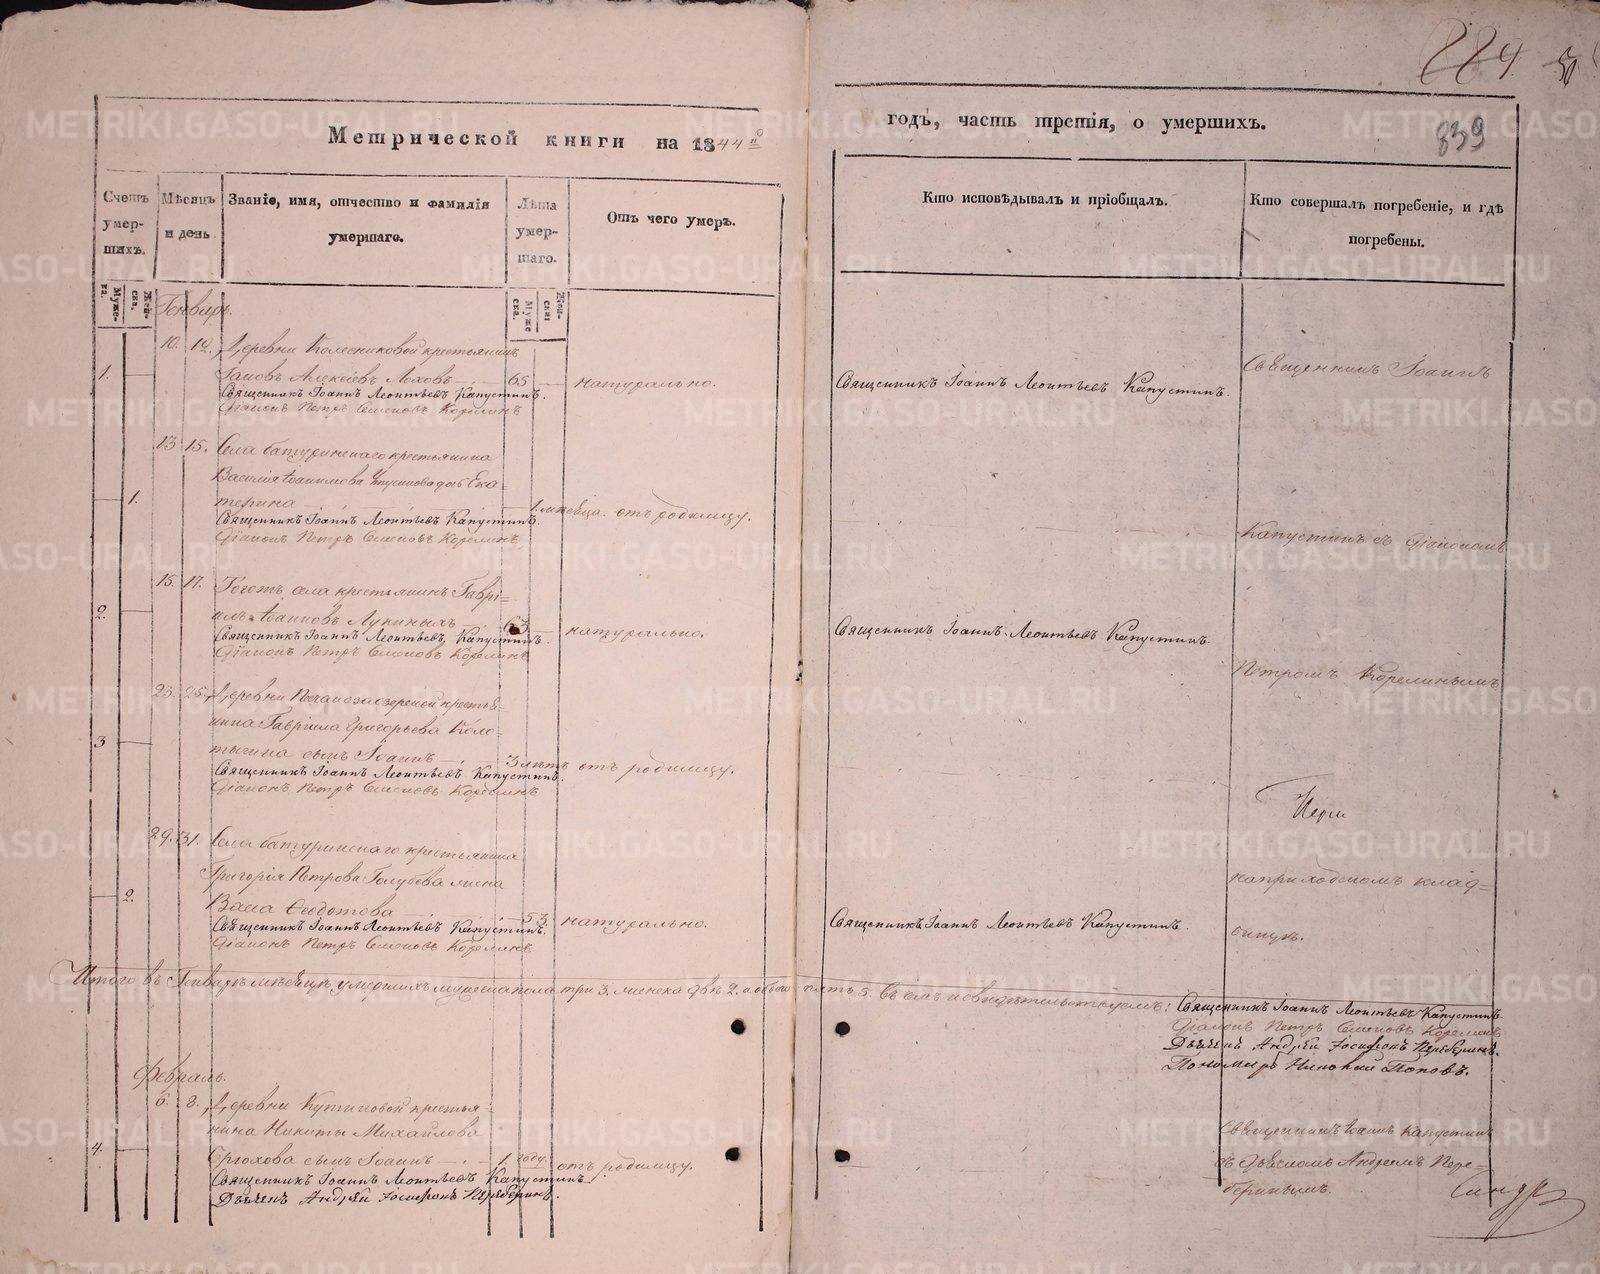 224
839
Метрической книги на 1844й
годъ, часть третія, о умершихъ.
Счетъ умер-шихъ.
Мѣсяцъ и день
Званіе, имя, отчество и фамилія умершаго.
Лѣта умер-шаго.
Отъ чего умеръ.
Кто исповѣдывалъ и пріобщалъ.
Кто совершалъ погребеніе, и гдѣ погребены.
Муже-ска.
Жен-ска.
Муже ска.
Жен-ски
Генварь.
1. 10. 12. Деревни Колесниковой крестьянинъ
Алексѣевъ Лоховъ 65 натурально.
Священникъ Іоаннъ Леонтьевъ Капустинъ.
Діаконъ Петръ Семеновъ Корелинъ
Священникъ Іоаннъ Леонтьевъ Капустинъ.
Священникъ Іоаннъ
13. 15. Села батуринскаго крестьянина
Василія Іоакимова дочь Ека=
1. терина 1. мѣсяца. отъ родимцу.
Священникъ Іоаннъ Леонтьевъ Капустинъ.
Діаконъ Петръ Семеновъ Корелинъ
Капустинъ съ Діакономъ
15. 17. Тогожъ села крестьянинъ Гаврі=
2. илъ Іоанновъ Лукиныхъ 63 натурально.
Священникъ Іоаннъ Леонтьевъ Капустинъ.
Діаконъ Петръ Семеновъ Корелинъ
Священникъ Іоаннъ Леонтьевъ Капустинъ.
Петромъ Корелинымъ
23. 25. Деревни крестья=
нина Гавріила Григорьева Коло=
3 тыгина сынъ Іоаннъ 3 лѣтъ отъ родимцу.
Священникъ Іоаннъ Леонтьевъ Капустинъ.
Діаконъ Петръ Семеновъ Корелинъ
29. 31. Села батуринскаго крестьянина
Григорія Петрова Голубева жена
2. Васа Ѳеодотова 53 натурально.
Священникъ Іоаннъ Леонтьевъ Капустинъ.
Діаконъ Петръ Семеновъ Корелинъ
Священникъ Іоаннъ Леонтьевъ Капустинъ.
на приходскомъ клад=
бищѣ.
Итого въ Генварѣ мѣсяцѣ умершихъ мужеска пола три 3. женска двѣ 2. а обоего пять 5. Въ семъ и свидѣтельствуемъ:
Священникъ Іоаннъ Леонтьевъ Капустинъ
Діаконъ Петръ Семеновъ Корелинъ
Дьячекъ Андрей Іосифовъ Переберинъ.
Пономарь Николай Поповъ.
Февраль.
6. 8. Деревни Кутиковой крестья=
нина Никиты Михайлова
4. Брюхова сынъ Іоаннъ 1. году. отъ родимцу.
Священникъ Іоаннъ Леонтьевъ Капустинъ.
Дьячекъ Андрей Іосифовъ Переберинъ.
Священникъ Іоаннъ Капустинъ
съ Дьячкомъ Андреемъ Пере=
беринымъ.
METRIKI.GASO-URAL.RU